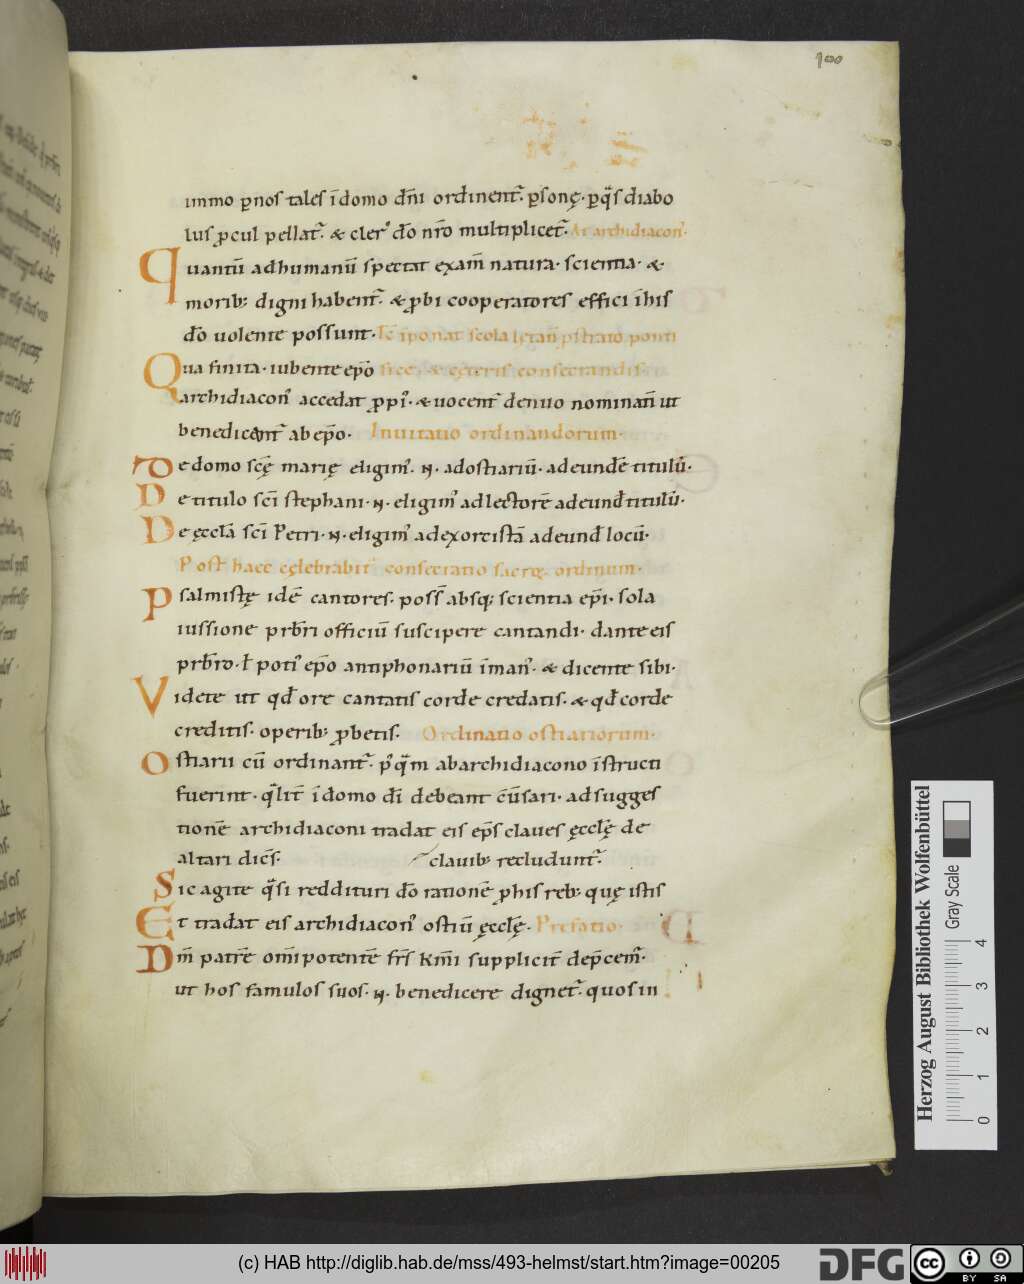 100
immo ꝑ nos tales ī domo dn̄i ordinent᷑· ꝑsonę· ꝑ q̄s diabo
lus ꝓcul pellat᷑· & cler᷒ dō nr̄o multiplicet᷑· At archidiacon᷒·
Quantū ad humanū spectat exam̄ natura· scientia· &·
morib; digni habent᷑· & ꝓbi cooperatores effici ī his
dō uolente possunt· Tc̄ īponat scola lętan̄ pstrato ponti
Qua finita· iubente ep̄o fice· & cęteris consecrandis·
archidiacon᷒ accedat ꝓp᷒· & uocent᷑ denuo nominatī ut
benedicant᷑ ab ep̄o· Inuitatio ordinandorum·
De domo scę̄ marię eligim᷒· N· ad ostiariū· ad eundē titulū·
De titulo sc̄i stephani· N· eligim᷒ ad lectorē ad eund̄ titulū·
De ęccla̅ sc̄i Petri· N· eligim᷒ ad exorcistā ad eund̄ locū·
Post haec cęlebrabit᷑ consecratio sacrę ordinum·
Psalmistę idē cantores· poss̄ absq; scientia ep̄i· sola
iussione prb̄ri officiū suscipere cantandi· dante eis
prb̄ro· ł poti᷒ ep̄o antiphonariū ī man᷒· & dicente sibi·
Videte ut qd̄ ore cantatis corde credatis· & qd̄ corde
creditis· operib; ꝓbetis· Ordinatio ostiariorum·
Ostiarii cū ordinant᷑· p᷒q̄m ab archidiacono īstructi
fuerint· q̄lit᷑ ī domo dī debeant cūsari· ad sugges
tionē archidiaconi tradat eis ep̄s claues ęcclę̄ de
altari dicēs· clauib; recludunt᷑·
Sic agite q̄si reddituri dō rationē ꝓ his reb; quę istis
Et tradat eis archidiacon᷒ ostiū ęcclę̄· Prefatio·
Dm̄ patrē om̄ipotentē frs̄ km̄i suppliciter dep̄cem᷑·
ut hos famulos suos· N· benedicere dignet᷑· quos in
Herzog August Bibliothek Wolfenbüttel
Gray Scale
0 1 2 3 4
(c) HAB http://diglib.hab.de/mss/493-helmst/start.htm?image=00205
DFG
cc BY SA